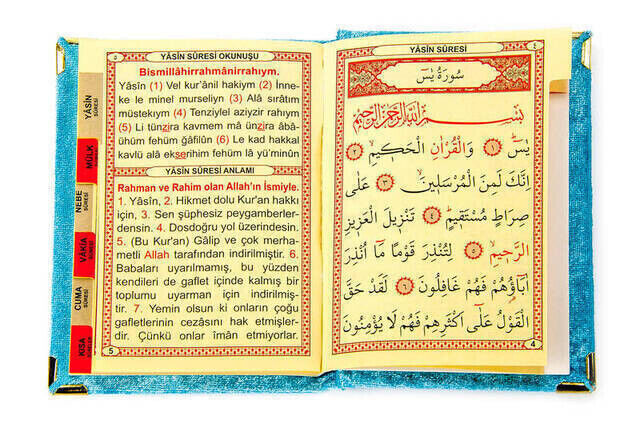 YÂSİN
SÛRESİ
MÜLK
SÛRESİ
NEBE
SÛRESİ
VÂKIA
SÛRESİ
CUMA
SÛRESİ
KISA
SÛRELER
٥
YÂSÎN SÛRESİ OKUNUŞU
Bismillâhirrahmânirrahıym.
Yâsîn (1) Vel kur'ânil hakiym (2) İnne-
ke le minel murseliyn (3) Alâ sırâtım
müstekıym (4) Tenziylel aziyzir rahıym
(5) Li tünzira kavmem mâ ünzira âbâ-
ühüm fehüm ğâfilûn (6) Le kad hakkal
kavlü alâ ekserihim fehüm lâ yü'minûn
YÂSÎN SÛRESİ ANLAMI
Rahman ve Rahim olan Allah'ın İsmiyle.
1. Yâsîn, 2. Hikmet dolu Kur'an hakkı
için, 3. Sen şüphesiz peygamberler-
densin. 4. Dosdoğru yol üzerindesin.
5. (Bu Kur'an) Gâlip ve çok merha-
metli Allah tarafından indirilmiştir. 6.
Babaları uyarılmamış, bu yüzden
kendileri de gaflet içinde kalmış bir
toplumu uyarman için indirilmiş-
tir. 7. Yemin olsun ki onların çoğu
gafletlerinin cezasını hak etmişler-
dir. Çünkü onlar îmân etmiyorlar.
5
YÂSÎN SÛRESİ
٤
سُورَةُ يٰسٓ
بِسْمِ اللّٰهِ الرَّحْمٰنِ الرَّحِيمِ
يٰسٓ ﴿١﴾ وَالْقُرْاٰنِ الْحَكٖيمِ ﴿٢﴾
اِنَّكَ لَمِنَ الْمُرْسَلٖينَ ﴿٣﴾ عَلٰى
صِرَاطٍ مُسْتَقٖيمٍ ﴿٤﴾ تَنْزٖيلَ الْعَزٖيزِ
الرَّحٖيمِ ﴿٥﴾ لِتُنْذِرَ قَوْمًا مَٓا اُنْذِرَ
اٰبَٓاؤُهُمْ فَهُمْ غَافِلُونَ ﴿٦﴾ لَقَدْ حَقَّ
الْقَوْلُ عَلٰٓى اَكْثَرِهِمْ فَهُمْ لَا يُؤْمِنُونَ
4